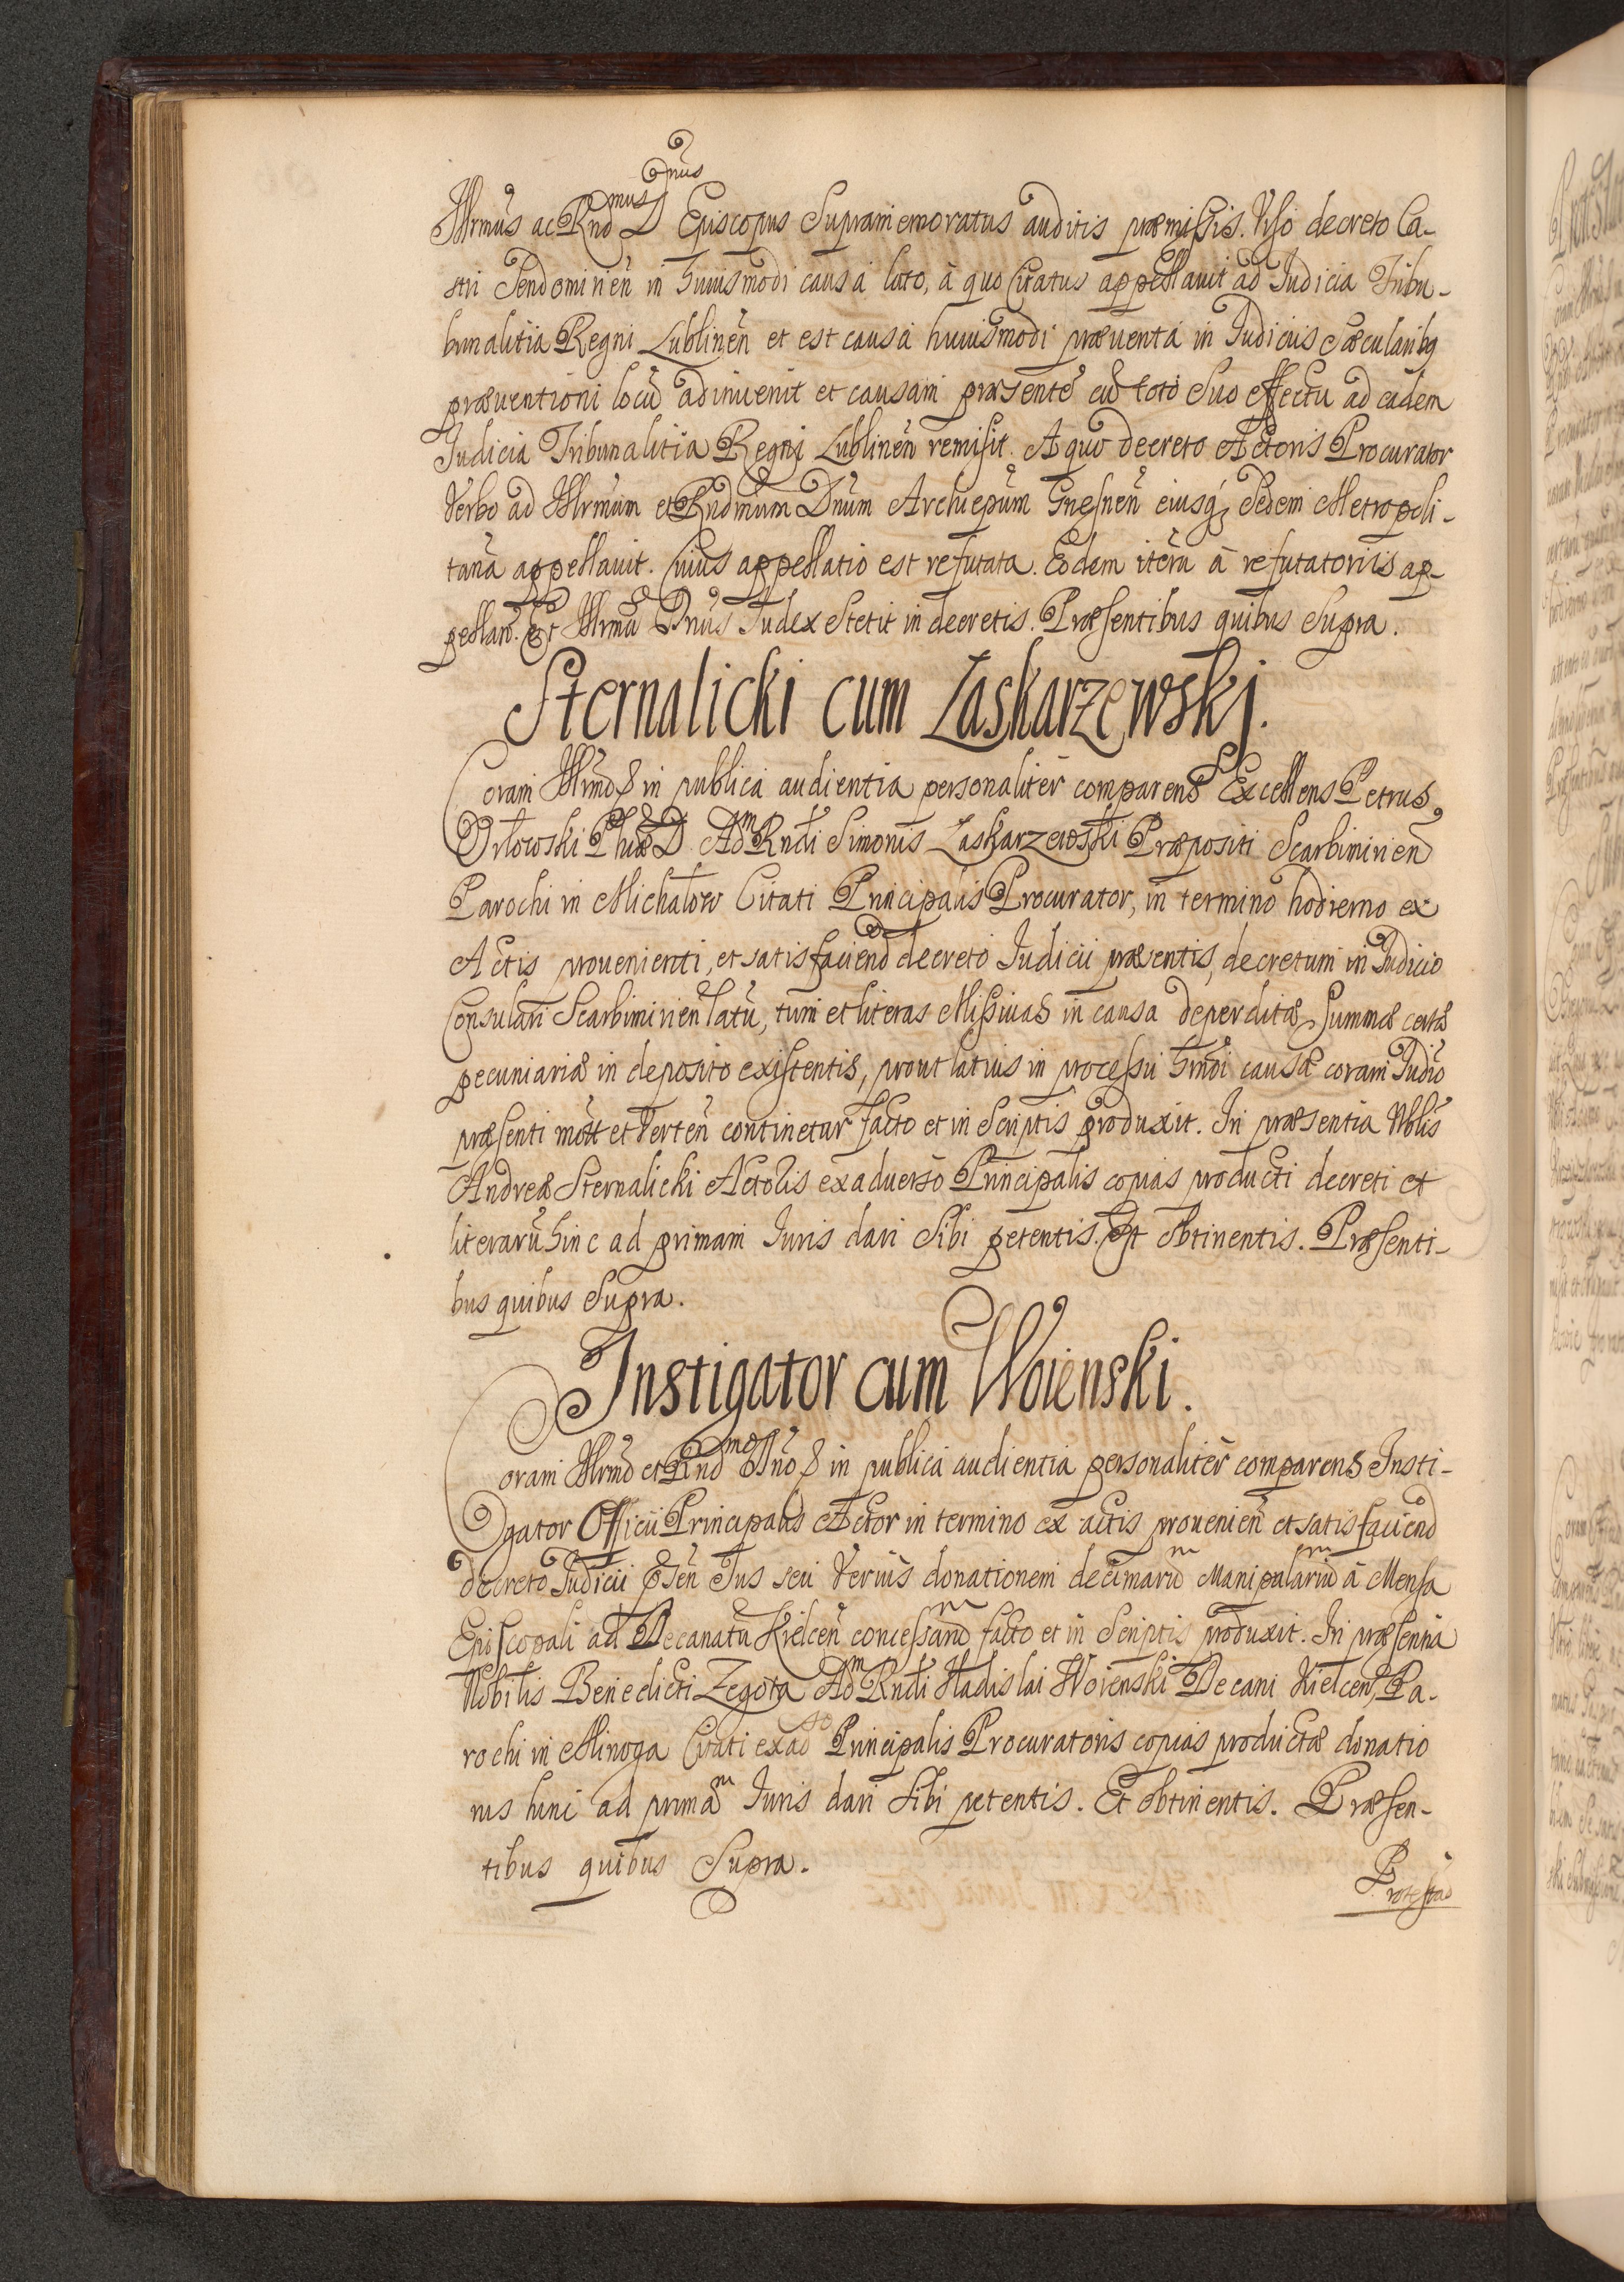 Illrmus ac Rndmus D Dnus Episcopus Supramemoratus auditis præmissis. Viso decreto Ca-
stri Sendomirien in huiusmodi causa lato, à quo Citatus appellauit ad Judicia Tribu-
bunalitia Regni Lublinen et est causa huiusmodi præuenta in Judiciis Sæcularibq
præuentioni locu adinuenit et causam præsente cu toto Suo effectu ad eadem
Judicia Tribunalitia Regni Lublinen remisit. A quo decreto Actoris Procurator
Verbo ad Illrmum et Rndmum Dnum Archiepum Gnesnen eiusq Sedem Metropoli-
tana appellauit. Cuius appellatio est refutata. Eodem iteru à refutatoriis ap-
pellan. Et Illrmu Dnus Judex Stetit in decretis. Præsentibus quibus Supra.
Sternalicki cum Laskarzewskj.
Coram Illrmo & in publica audientia personaliter comparens Excellens Petrus
Orłowski Phiæ D. Adm Rndi Simonis Laskarzewski Præpositi Scarbimirien
Parochi in Michałow Citati Principalis Procurator, in termino hodierno ex
Actis prouenienti, et satisfaciend decreto Judicii præsentis, decretum in Judicio
Consulari Scarbimirien latu, tum et literas Missiuas in causa deperditæ Summæ certæ
pecuniariæ in deposito existentis, prout latius in processu hmdi causæ coram Judio
præsenti mott et Verten continetur facto et in Scriptis produxit. In præsentia Nblis
Andreæ Sternalicki Actoris exaduerso Principalis copias producti decreti et
literaru hinc ad primam Juris dari Sibi petentis. Et obtinentis. Præsenti-
bus quibus Supra.
Instigator cum Woienski.
Coram Illrmo et Rndmo Dno & in publica audientia personaliter comparens Insti-
gator Officii Principalis Actor in termino ex actis prouenien et satisfaciend
decreto Judicii Psen Jus seu Verius donationem decimarum Manipularium à Mensa
Episcopali ad Decanatu Kielcen concessam facto et in Scriptis produxit. In præsentia
Nobilis Benedicti Zegota Adm Rndi Wladislai Woienski Decani Kielcen, Pa-
rochi in Minoga Citati exad Principalis Procuratoris copias productæ donatio
nis hinc ad primam Juris dari Sibi petentis. Et obtinentis. Præsen-
tibus quibus Supra.
Protestao